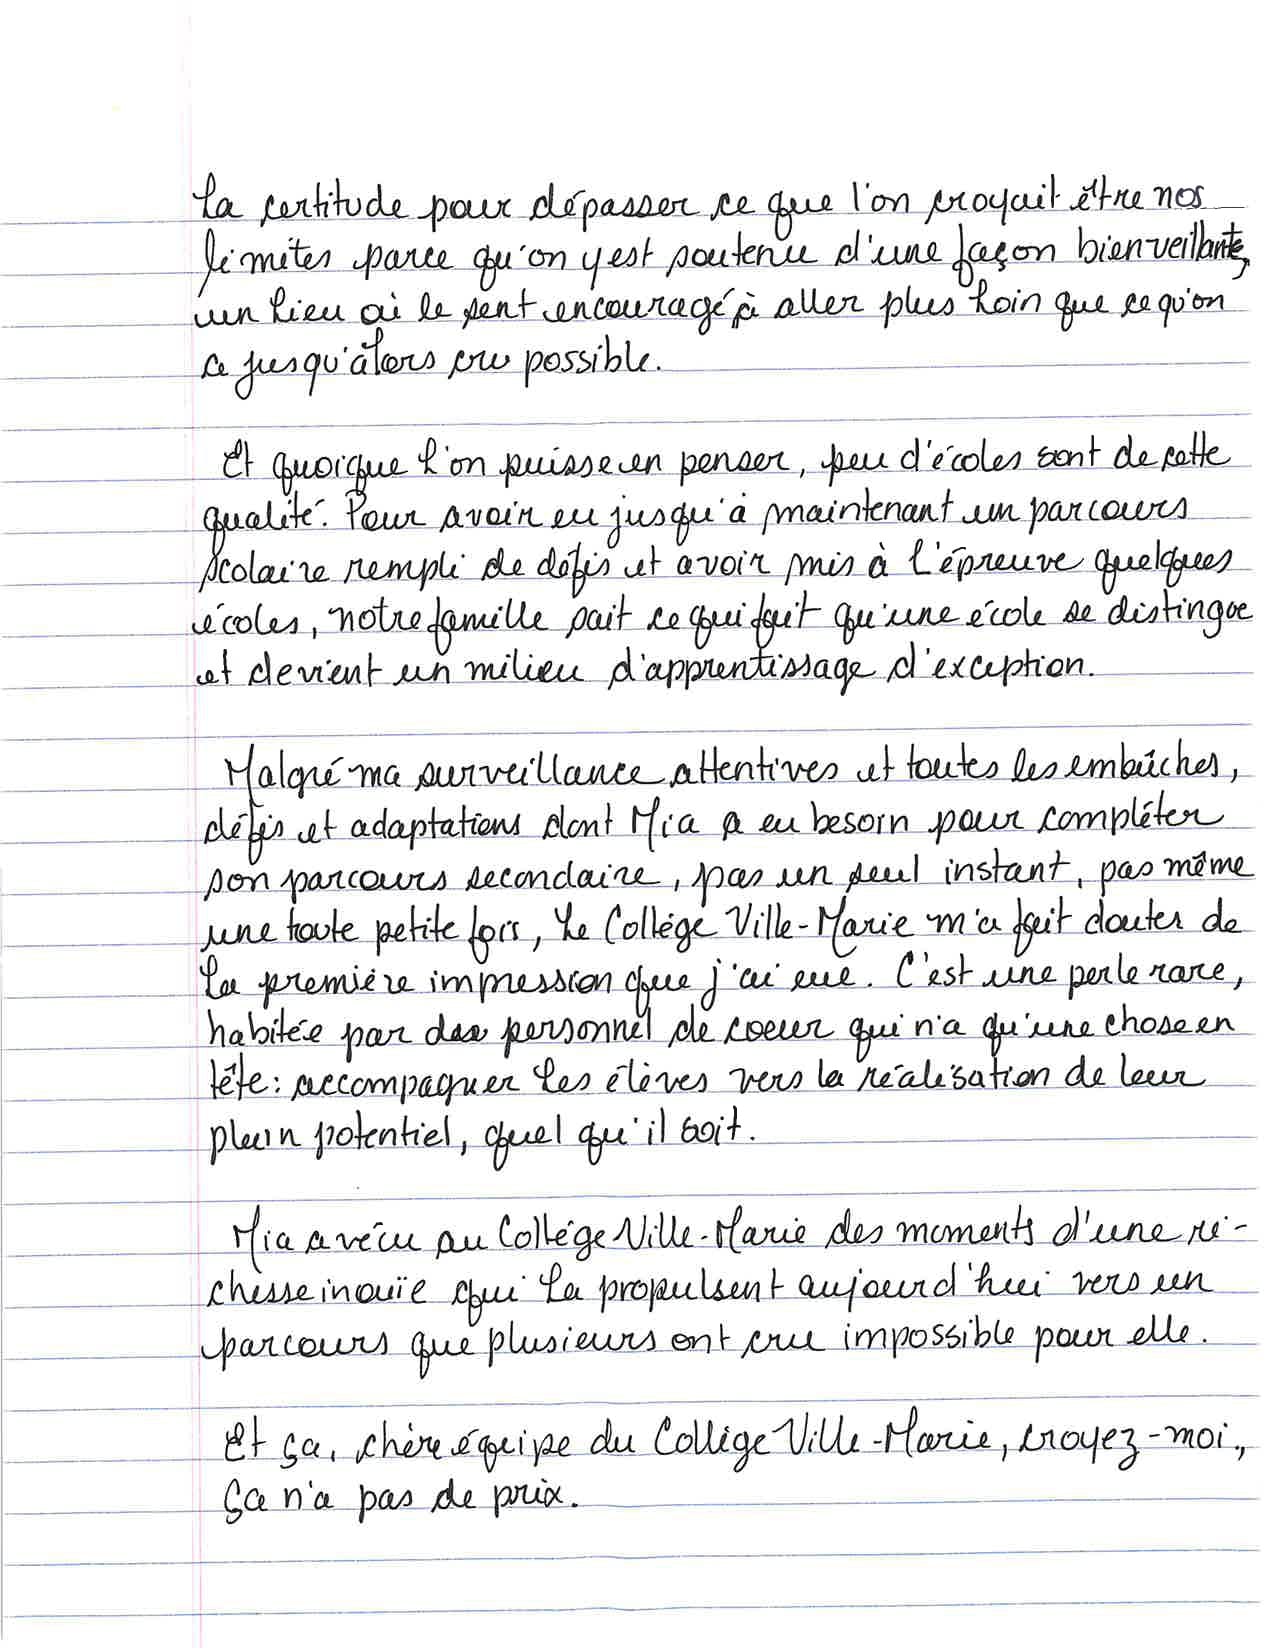 la certitude pour dépasser ce que l'on croyait être nos
limites parce qu'on y est soutenu d'une façon bienveillante,
un lieu où le sent encouragé à aller plus loin que ce qu'on
a jusqu'alors cru possible.
Et quoique l'on puisse en penser, peu d'écoles sont de cette
qualité. Pour avoir eu jusqu'à maintenant un parcours
scolaire rempli de défis et avoir mis à l'épreuve quelques
écoles, notre famille sait ce qui fait qu'une école se distingue
et devient un milieu d'apprentissage d'exception.
Malgré ma surveillance attentives et toutes les embûches,
défis et adaptations dont Mia a eu besoin pour compléter
son parcours secondaire, pas un seul instant, pas même
une toute petite fois, le Collège Ville-Marie m'a fait douter de
la première impression que j'ai eue. C'est une perle rare,
habitée par des personnel de coeur qui n'a qu'une chose en
tête: accompagner les élèves vers la réalisation de leur
plein potentiel, quel qu'il soit.
Mia a vécu au Collège Ville-Marie des moments d'une ri-
chesse inouïe qui la propulsent aujourd'hui vers un
parcours que plusieurs ont cru impossible pour elle.
Et ça, chère équipe du Collège Ville-Marie, croyez-moi,
ça n'a pas de prix.